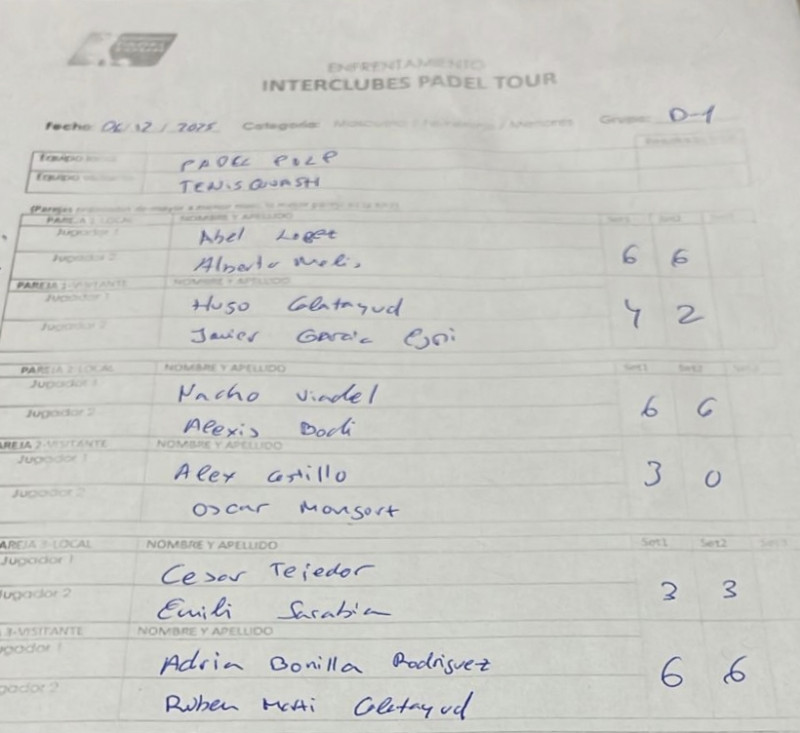 PADEL
TOUR
ENFRENTAMIENTO
INTERCLUBES PADEL TOUR
Fecha: 06/12/2025 Categoria: Masculino / Femenino / Menores Grupo: D-1
Equipo PADEL POLP
Equipo visitante TENISQUASH
PAREJA 1-LOCAL NOMBRE Y APELLIDO Set1 Set2
Jugador 1 Abel Lopez
Jugador 2 Alberto Melis 6 6
PAREJA 1-VISITANTE NOMBRE Y APELLIDO
Jugador 1 Hugo Calatayud 4 2
Jugador 2 Javier Garcia
PAREJA 2-LOCAL NOMBRE Y APELLIDO Set1 Set2 Set3
Jugador 1 Nacho Viadel 6 6
Jugador 2 Alexis Bodi
AREJA 2-VISITANTE NOMBRE Y APELLIDO
Jugador 1 Alex Castillo 3 0
Jugador 2 Oscar Monsort
AREJA 3-LOCAL NOMBRE Y APELLIDO Set1 Set2 Set3
Jugador 1 Cesar Tejedor 3 3
ugador 2 Emili Sarabia
3-VISITANTE NOMBRE Y APELLIDO
ugador 1 Adria Bonilla Rodriguez 6 6
gador 2 Ruben Calatayud